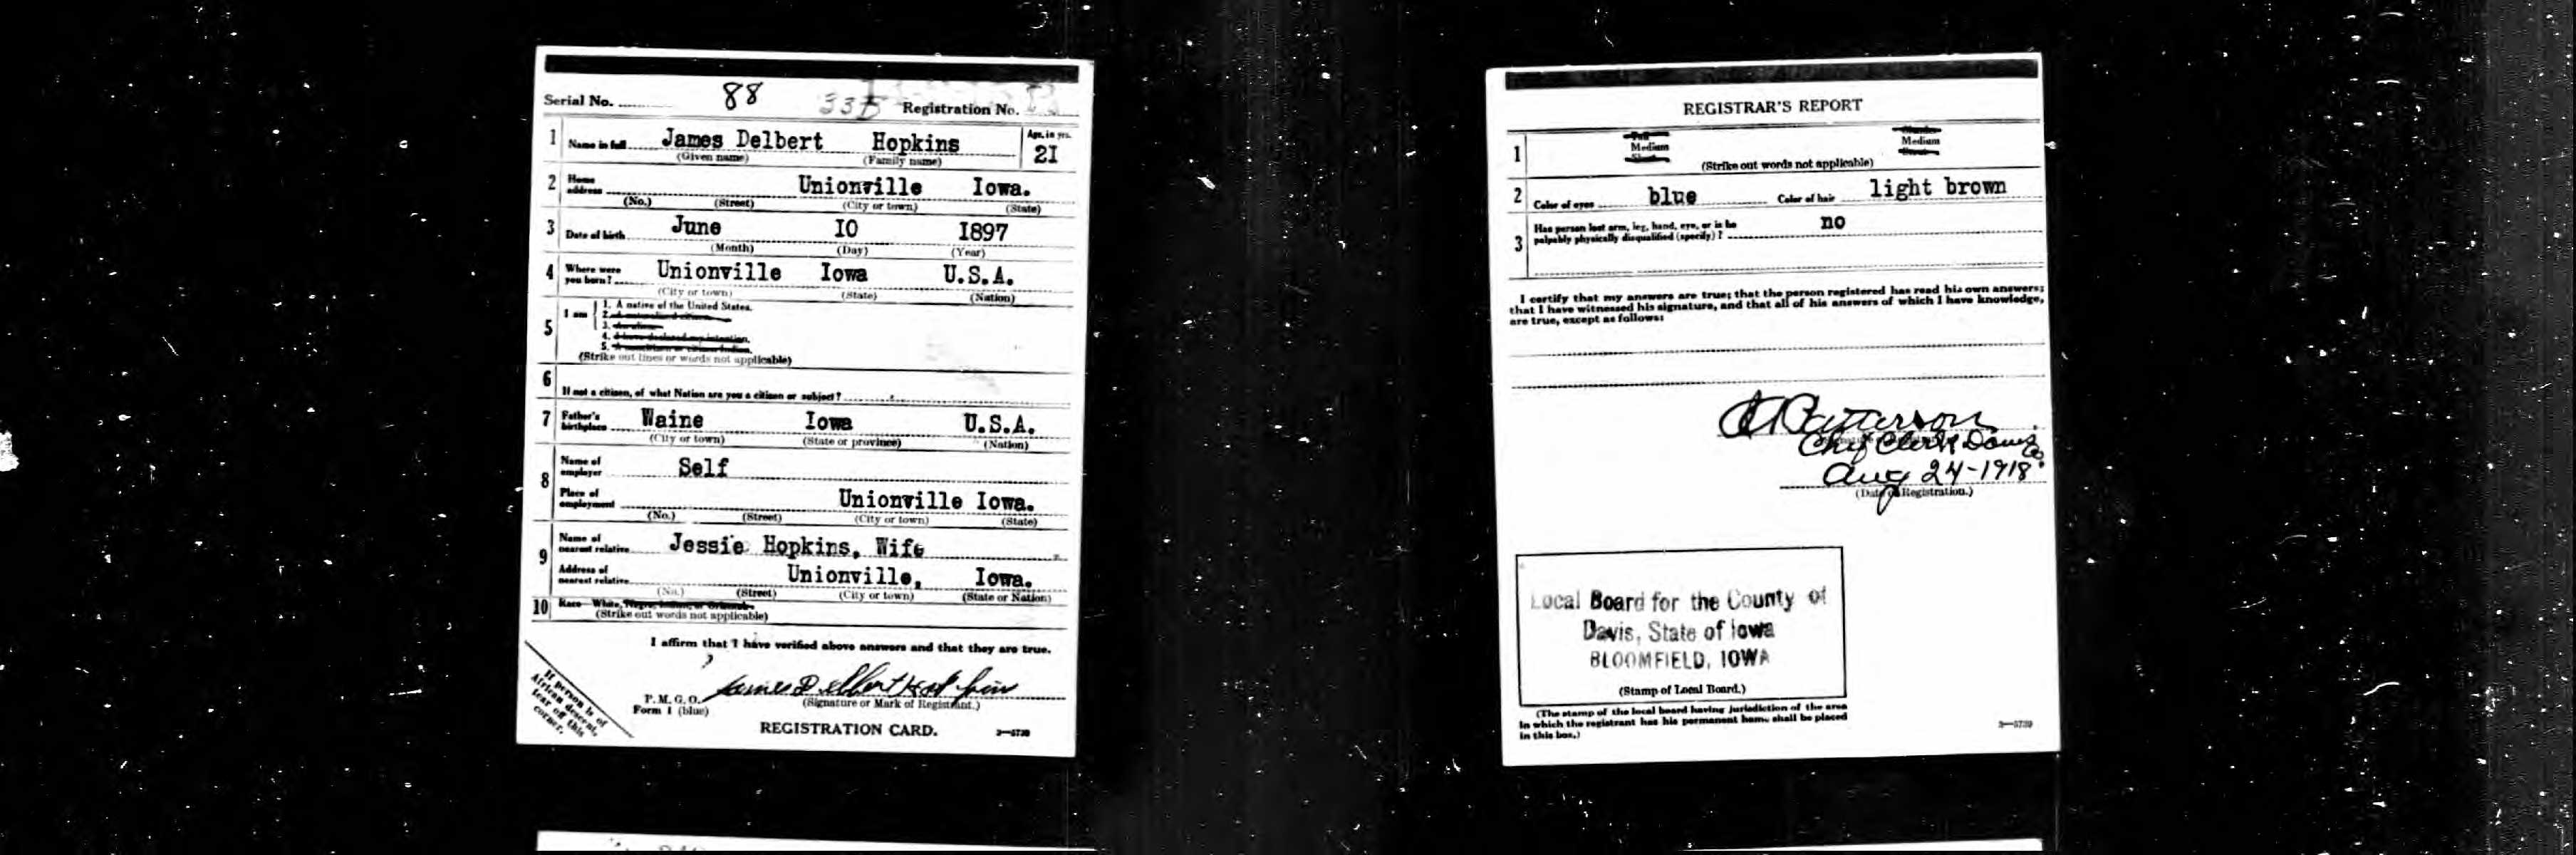 Serial No. 88 335 Registration No.
1 Name in full James Delbert Hopkins Age, in yrs. 21
(Given name) (Family name)
2 Home address Unionville Iowa.
(No.) (Street) (City or town) (State)
3 Date of birth June IO I897
(Month) (Day) (Year)
4 Where were you born? Unionville Iowa U.S.A.
(City or town) (State) (Nation)
5 I am
1. A native of the United States.
2. A naturalized citizen.
3. An alien.
4. I have declared my intention.
5. A noncitizen or citizen Indian.
(Strike out lines or words not applicable)
6 If not a citizen, of what Nation are you a citizen or subject?
7 Father's birthplace Waine Iowa U.S.A.
(City or town) (State or province) (Nation)
8 Name of employer Self
Place of employment Unionville Iowa.
(No.) (Street) (City or town) (State)
9 Name of nearest relative Jessie Hopkins, Wife
Address of nearest relative Unionville, Iowa.
(No.) (Street) (City or town) (State or Nation)
10 Race—White, Negro, Indian, or Oriental.
(Strike out words not applicable)
I affirm that I have verified above answers and that they are true.
James Delbert Hopkins
P. M. G. O. Form 1 (blue)
(Signature or Mark of Registrant.)
REGISTRATION CARD.
If person is of
African descent,
tear off this
corner.
3—5739
REGISTRAR'S REPORT
1 Tall Medium Short Slender Medium Stout
(Strike out words not applicable)
2 Color of eyes blue Color of hair light brown
3 Has person lost arm, leg, hand, eye, or is he
palpably physically disqualified (specify)? no
I certify that my answers are true; that the person registered has read his own answers;
that I have witnessed his signature, and that all of his answers of which I have knowledge,
are true, except as follows:
Patterson
Chief Clerk Davis Co
Aug 24-1918
(Date of Registration.)
Local Board for the County of
Davis, State of Iowa
BLOOMFIELD, IOWA
(Stamp of Local Board.)
(The stamp of the local board having jurisdiction of the area
in which the registrant has his permanent home shall be placed
in this box.)
3—5739